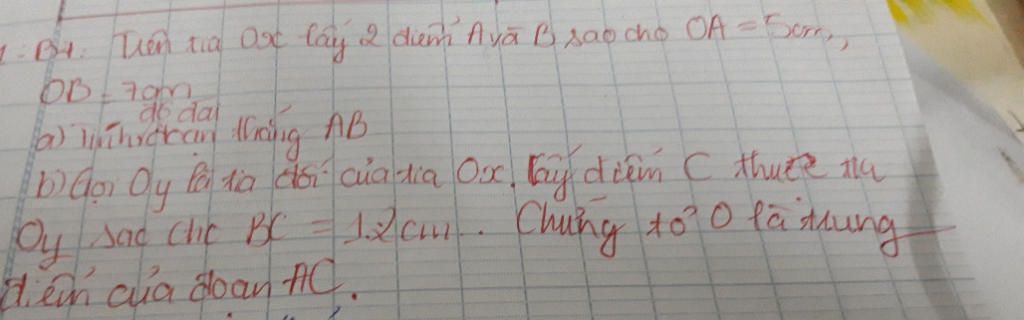 B4: Trên tia Ox lấy 2 điểm A và B sao cho OA = 5cm,
OB = 7cm
độ dài
a) Tính đoạn thẳng AB
b) Gọi Oy là tia đối của tia Ox. Lấy điểm C thuộc tia
Oy sao cho BC = 12cm. Chứng tỏ O là trung
điểm của đoạn AC.